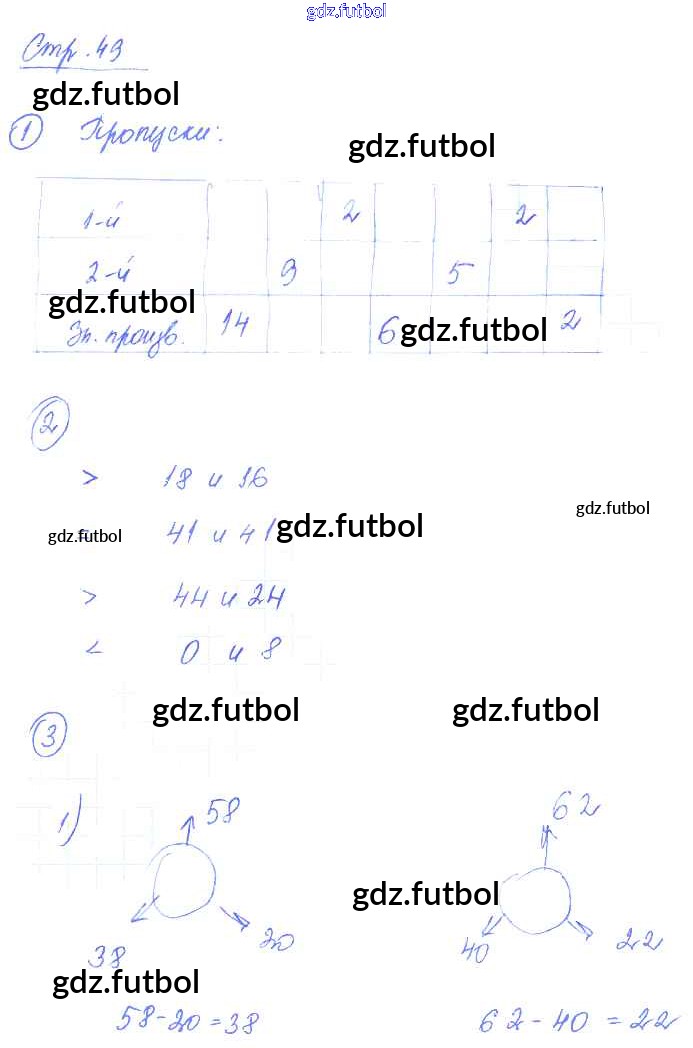 gdz.futbol
Стр. 49
gdz.futbol
① Пропуски:
gdz.futbol
1-й 2 2
2-й 9 5
gdz.futbol
Зн. произв. 14 6 2
gdz.futbol
②
> 18 и 16
gdz.futbol
= 41 и 41
gdz.futbol
gdz.futbol
> 44 и 24
< 0 и 8
gdz.futbol gdz.futbol
③
1) 58 62
gdz.futbol
38 20 40 22
gdz.futbol
58-20=38 62-40=22